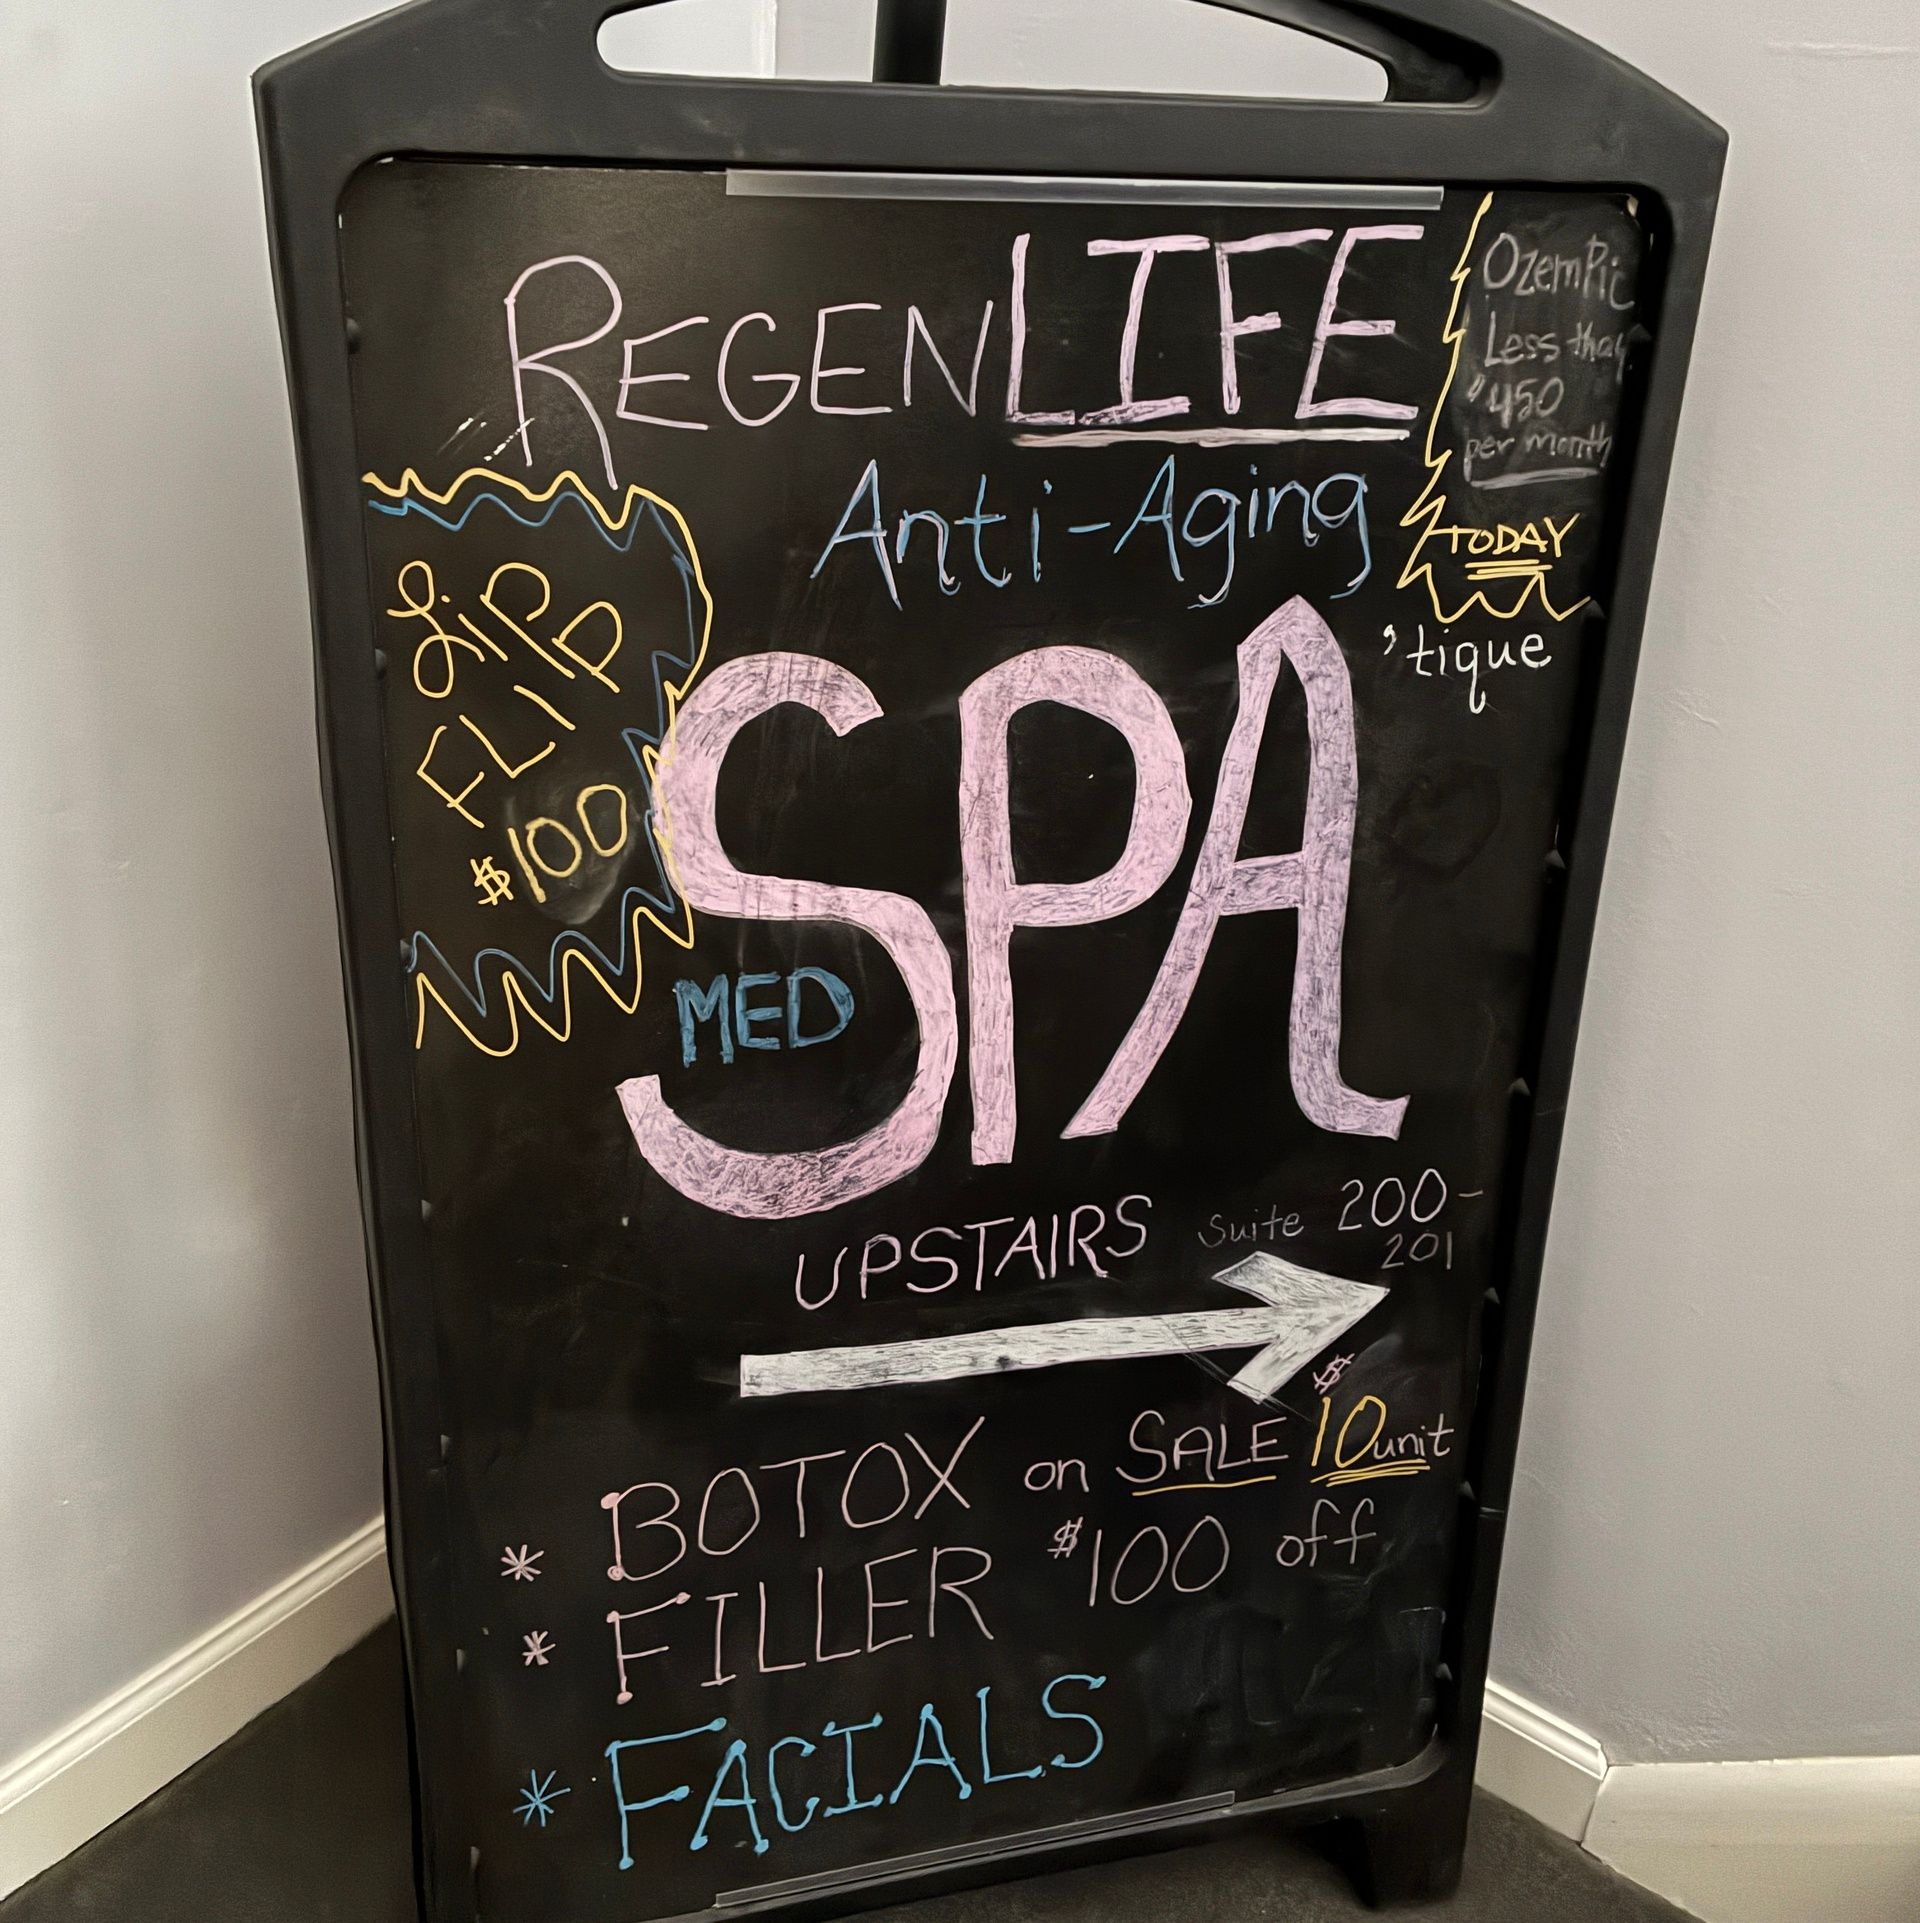 REGENLIFE
Anti-Aging
SPA
'tique
MED
OzemPic
Less than
$450
per month
TODAY
LiPP
FLIP
$100
UPSTAIRS Suite 200-
201
* BOTOX on SALE $10unit
* FILLER $100 off
* FACIALS